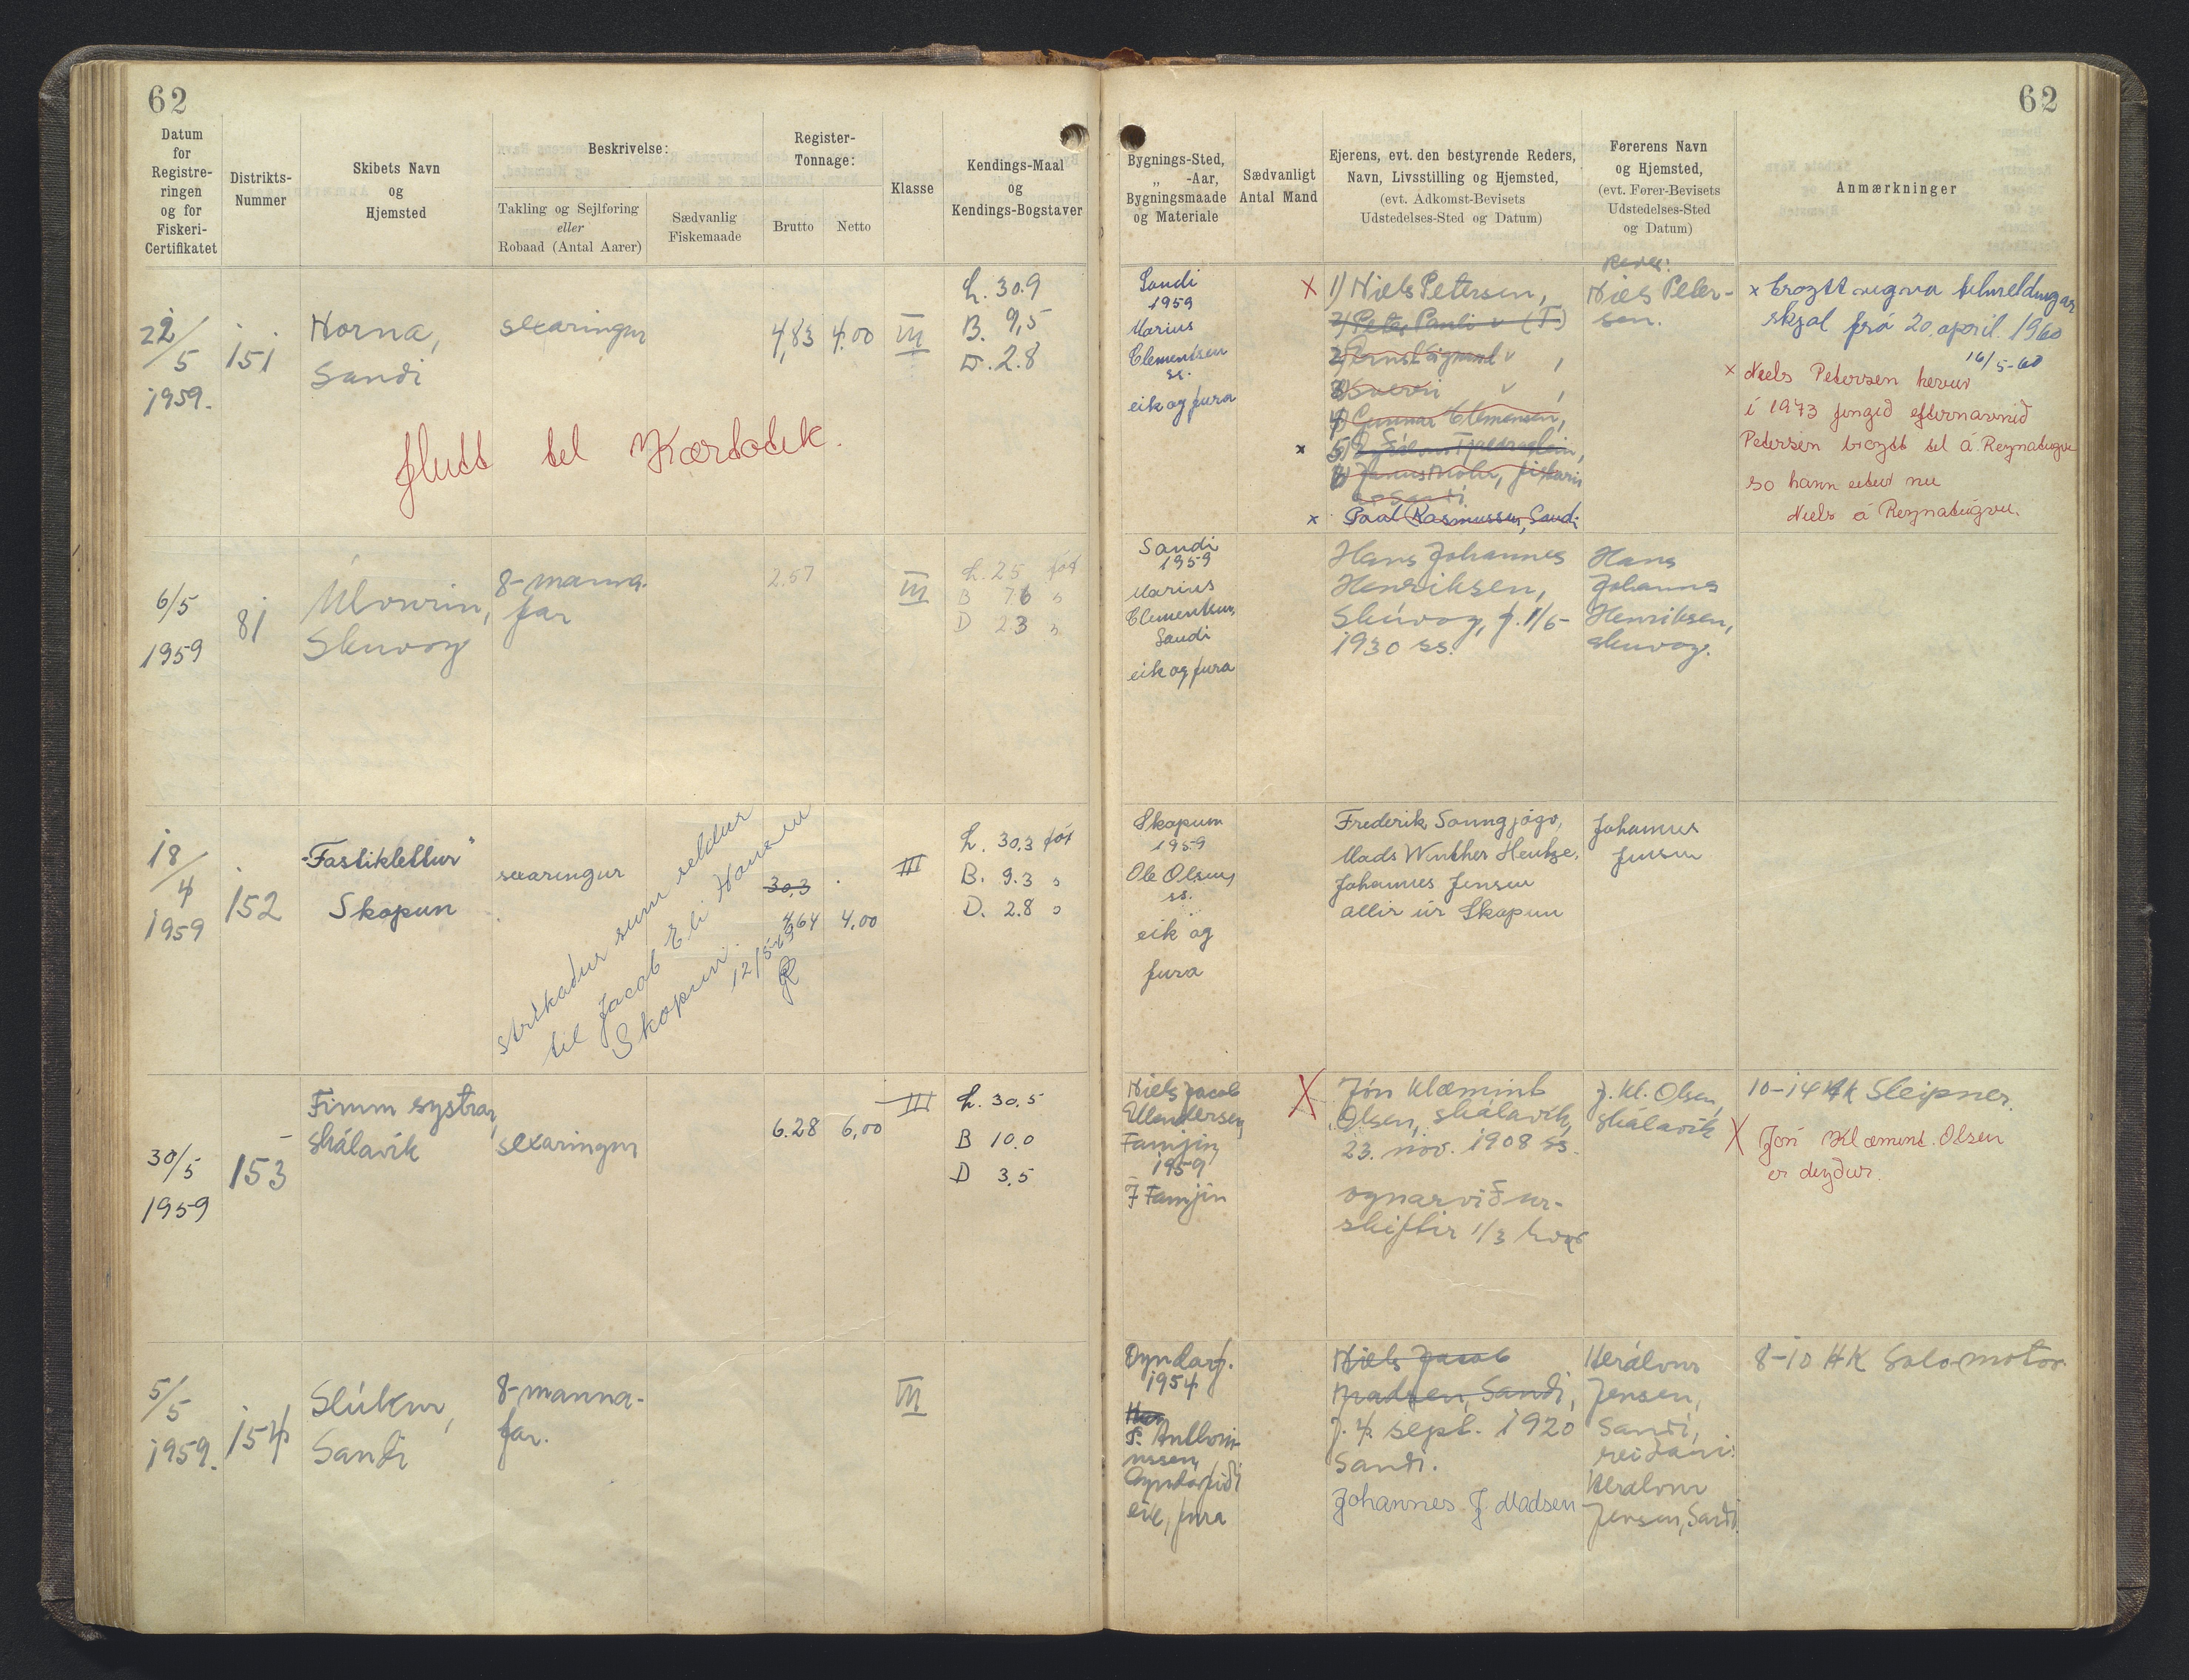 62
Datum
for
Registre-
ringen
og for
Fiskeri-
Certifikatet
Distrikts-
Nummer
Skibets Navn
og
Hjemsted
Beskrivelse:
Takling og Sejlføring
eller
Robaad (Antal Aarer)
Sædvanlig
Fiskemaade
Register-
Tonnage:
Brutto
Netto
Klasse
Kendings-Maal
og
Kendings-Bogstaver
22/5
1959.
151
Norna,
Sandi
sexaringur
4,83
4.00
III
L. 30.9
B. 9,5
D. 2.8
flutt til Kartotek.
6/5
1959
81
Skuvoy
8-manna-
far
2.57
III
L. 25 föt
B 7.6 "
D 2.3 "
18/4
1959
152
"Fastiklettur"
Skopun
sexaringur
30,3
4,64
4.00
III
L. 30,3 föt
B. 9.3 "
D. 2.8 "
strikaður sum seldur
til Jacob Eli Hansen
Skopun.
30/5
1959
153
Fimm systrar,
Skálavík
sexaringur
6.28
6,00
III
L. 30.5
B 10.0
D 3.5
5/5
1959.
154
Slúkur,
Sandi
8-manna-
far.
III
62
Bygnings-Sted,
„ -Aar,
Bygningsmaade
og Materiale
Sædvanligt
Antal Mand
Ejerens, evt. den bestyrende Reders,
Navn, Livsstilling og Hjemsted,
(evt. Adkomst-Bevisets
Udstedelses-Sted og Datum)
Førerens Navn
og Hjemsted,
(evt. Fører-Bevisets
Udstedelses-Sted
og Datum)
Anmærkninger
Sandi
1959
Marius
Clementsen
ss.
eik og fura
x 1) Niels Petersen,
4) Gunnar Clemensen,
x Poul Rasmussen, Sandi
Reder:
Niels Peter-
sen.
x broytt ognar tilmeldingar
skjal frá 20. april 1960
16/5-60
x Niels Petersen hevur
í 1973 fingið efternavnið
Petersen broytt til á Reynatúgvu
so hann eitur nu
Niels á Reynatúgvu.
Sandi
1959
Marius
Clementsen,
Sandi
eik og fura
Hans Johannes
Henriksen,
Skúvoy, f. 1/6-
1930 ss.
Hans
Johannes
Henriksen,
Skuvoy.
Skopun
1959
Ole Olsen,
ss.
eik og
fura
Mads Winther Hentze,
Johannes Jensen
allir úr Skopun
Johannes
Jensen
Niels Jacob
Famjin,
1959
Í Famjin
X Jón Klæmint
Olsen, Skálavík,
23. nov. 1908 ss.
ognarviður-
skiftir 1/3 hvør
J. Kl. Olsen,
Skálavík
10-14 HK Sleipner.
X Jón Klæmint Olsen
er deyður.
Oyndarf.
1954
eik, fura
Niels Jacob
Madsen, Sandi,
f. 4. sept. 1920
Sandi.
Johannes J. Madsen
Herálvur
Jensen,
Sandi,
reiðari:
Herálvur
Jensen, Sandi.
8-10 HK Solomotor.